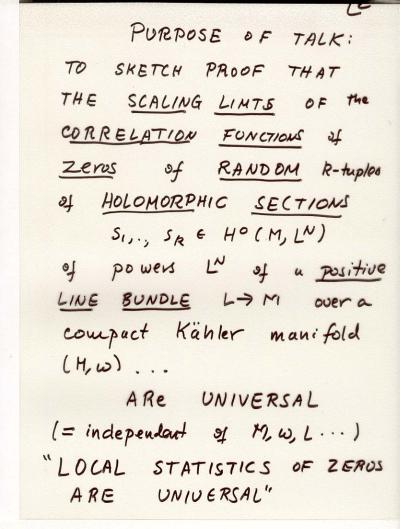 PURPOSE OF TALK:
TO SKETCH PROOF THAT
THE SCALING LIMTS OF the
CORRELATION FUNCTIONS of
Zeros of RANDOM k-tuples
of HOLOMORPHIC SECTIONS
S₁,., Sₖ ∈ H⁰(M, Lᴺ)
of powers Lᴺ of a positive
LINE BUNDLE L→M over a
compact Kähler manifold
(M, ω) ...
ARe UNIVERSAL
(= independent of M, ω, L ...)
"LOCAL STATISTICS OF ZEROS
ARE UNIVERSAL"